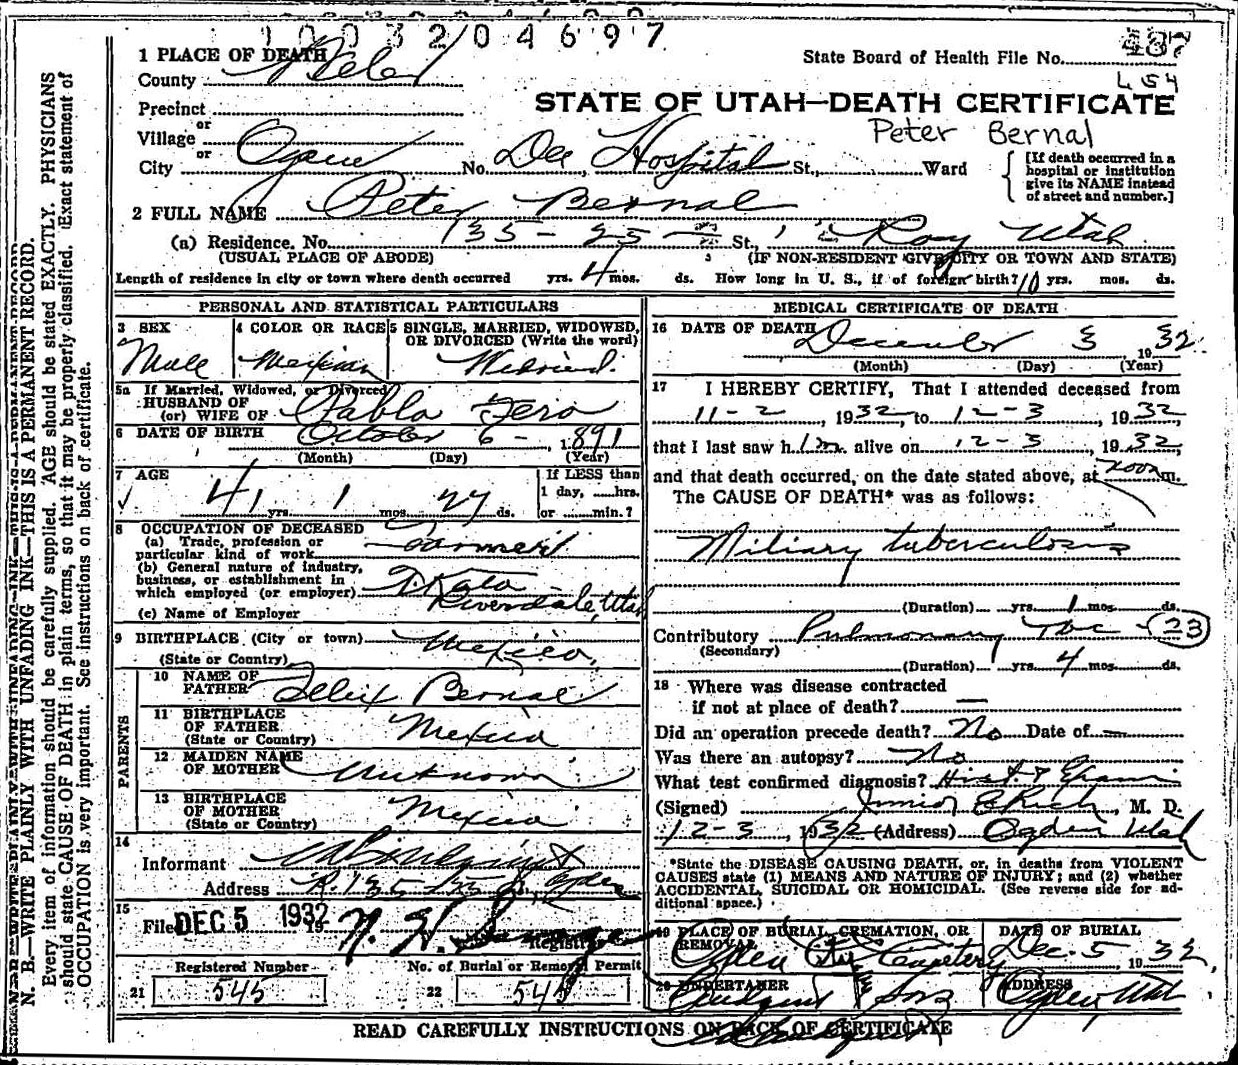 1003204697
1 PLACE OF DEATH
County Weber
State Board of Health File No. 487
L 54
Precinct
STATE OF UTAH—DEATH CERTIFICATE
or
Village
Peter Bernal
or
City Ogden No. Dee Hospital St., Ward
[If death occurred in a hospital or institution give its NAME instead of street and number.]
2 FULL NAME Peter Bernal
(a) Residence. No. 135-25 St., Roy Utah
(USUAL PLACE OF ABODE) (IF NON-RESIDENT GIVE CITY OR TOWN AND STATE)
Length of residence in city or town where death occurred yrs. 4 mos. ds. How long in U. S., if of foreign birth? 10 yrs. mos. ds.
PERSONAL AND STATISTICAL PARTICULARS
3 SEX
Male
4 COLOR OR RACE
Mexican
5 SINGLE, MARRIED, WIDOWED, OR DIVORCED (Write the word)
Widowed.
5a If Married, Widowed, or Divorced
HUSBAND OF
(or) WIFE OF Pabla
6 DATE OF BIRTH October 6 - 1891
(Month) (Day) (Year)
7 AGE
41 yrs. 1 mos. 27 ds.
If LESS than
1 day, hrs.
or min.?
8 OCCUPATION OF DECEASED
(a) Trade, profession or
particular kind of work
(b) General nature of industry,
business, or establishment in
which employed (or employer) T. Kato
Riverdale, Utah
(c) Name of Employer
9 BIRTHPLACE (City or town) Mexico,
(State or Country)
PARENTS
10 NAME OF FATHER Felix Bernal
11 BIRTHPLACE OF FATHER (State or Country) Mexico
12 MAIDEN NAME OF MOTHER Unknown
13 BIRTHPLACE OF MOTHER (State or Country) Mexico
14
Informant
Address
15
Filed DEC 5 1932 19
Registrar
Registered Number
21 545
No. of Burial or Removal Permit
22 545
MEDICAL CERTIFICATE OF DEATH
16 DATE OF DEATH December 3 1932.
(Month) (Day) (Year)
17 I HEREBY CERTIFY, That I attended deceased from
11-2, 1932, to 12-3, 1932,
that I last saw him alive on 12-3, 1932,
and that death occurred, on the date stated above, at m.
The CAUSE OF DEATH* was as follows:
Miliary tuberculosis
(Duration) yrs. 1 mos. ds.
Contributory Pulmonary Tbc - 23
(Secondary)
(Duration) yrs. 4 mos. ds.
18 Where was disease contracted
if not at place of death? —
Did an operation precede death? No Date of —
Was there an autopsy? No
What test confirmed diagnosis? Hist. & Exam
(Signed) Junior E Rich, M. D.
12-3, 1932 (Address) Ogden Utah
*State the DISEASE CAUSING DEATH, or, in deaths from VIOLENT
CAUSES state (1) MEANS AND NATURE OF INJURY; and (2) whether
ACCIDENTAL, SUICIDAL OR HOMICIDAL. (See reverse side for ad-
ditional space.)
19 PLACE OF BURIAL, CREMATION, OR REMOVAL
Ogden City Cemetery
DATE OF BURIAL
Dec. 5, 1932,
20 UNDERTAKER
& Sons
ADDRESS
Ogden, Utah
READ CAREFULLY INSTRUCTIONS ON BACK OF CERTIFICATE
N. B.—WRITE PLAINLY WITH UNFADING INK—THIS IS A PERMANENT RECORD.
Every item of information should be carefully supplied. AGE should be stated EXACTLY. PHYSICIANS
should state CAUSE OF DEATH in plain terms, so that it may be properly classified. Exact statement of
OCCUPATION is very important. See instructions on back of certificate.